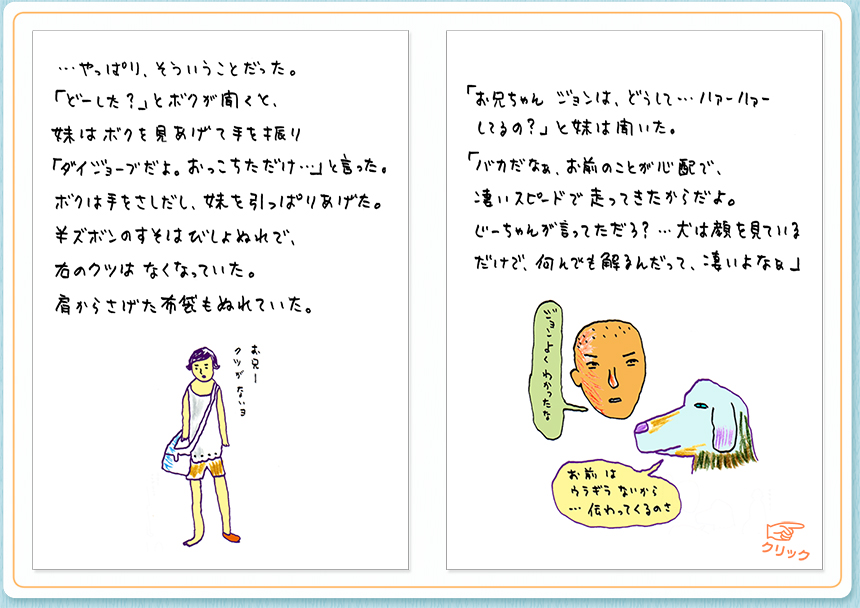 …やっぱり、そういうことだった。
「どーした？」とボクが聞くと、
妹はボクを見あげて手を振り
「ダイジョーブだよ。おっこちただけ…」と言った。
ボクは手をさしだし、妹を引っぱりあげた。
半ズボンのすそはびしょぬれで、
右のクツは なくなっていた。
肩からさげた布袋もぬれていた。
お兄ー
クツがないヨ
「お兄ちゃん ジョンは、どうして…ハァーハァー
してるの？」と妹は聞いた。
「バカだなぁ、お前のことが心配で、
凄いスピードで走ってきたからだよ。
じーちゃんが言ってただろ？…犬は顔を見ている
だけで、何んでも解るんだって、凄いよなぁ」
ジョンよくわかったな
お前は
ウラギラないから
…伝わってくるのさ
クリック